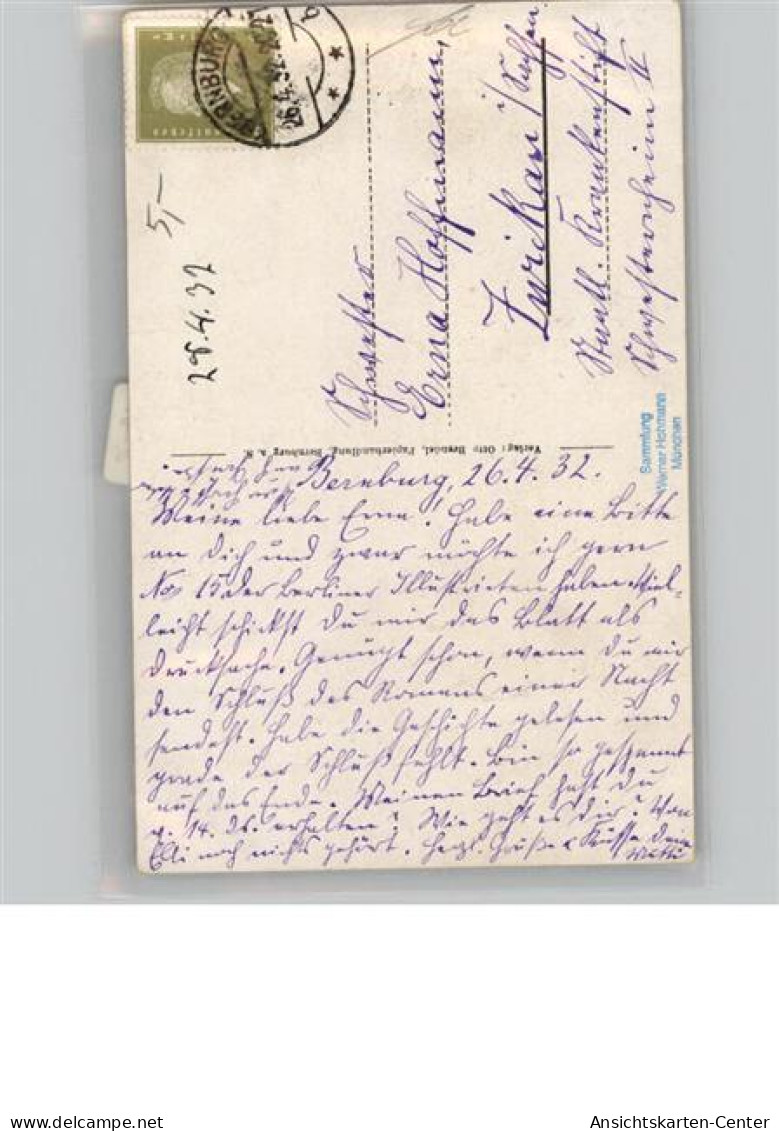 BERNBURG
26.4.32. 20-21
b
5,-
28.4.32
Schwester
Erna Hoffmann,
Zwickau i/Sachsen.
Staatl. Krankenstift
Schwesternheim II
Verlag: Otto Brendel, Papierhandlung, Bernburg a. S.
Sammlung
Werner Hohmann
München
Bernburg, 26.4.32.
Meine liebe Erna! Habe eine Bitte
an Dich und zwar möchte ich gern
No 15 der Berliner Illustrirten haben. Viel-
leicht schickst Du mir das Blatt als
Drucksache. Genügt schon, wenn Du mir
den Schluß des Romans einer Nacht
sendest. Habe die Geschichte gelesen und
grade der Schluß fehlt. Bin so gespannt
auf das Ende. Meinen Brief hast Du
v. 14. ds. erhalten? Wie geht es Dir? Von
Elli noch nichts gehört. Herzl. Grüße & Küsse Deine
Mutti
Ansichtskarten-Center